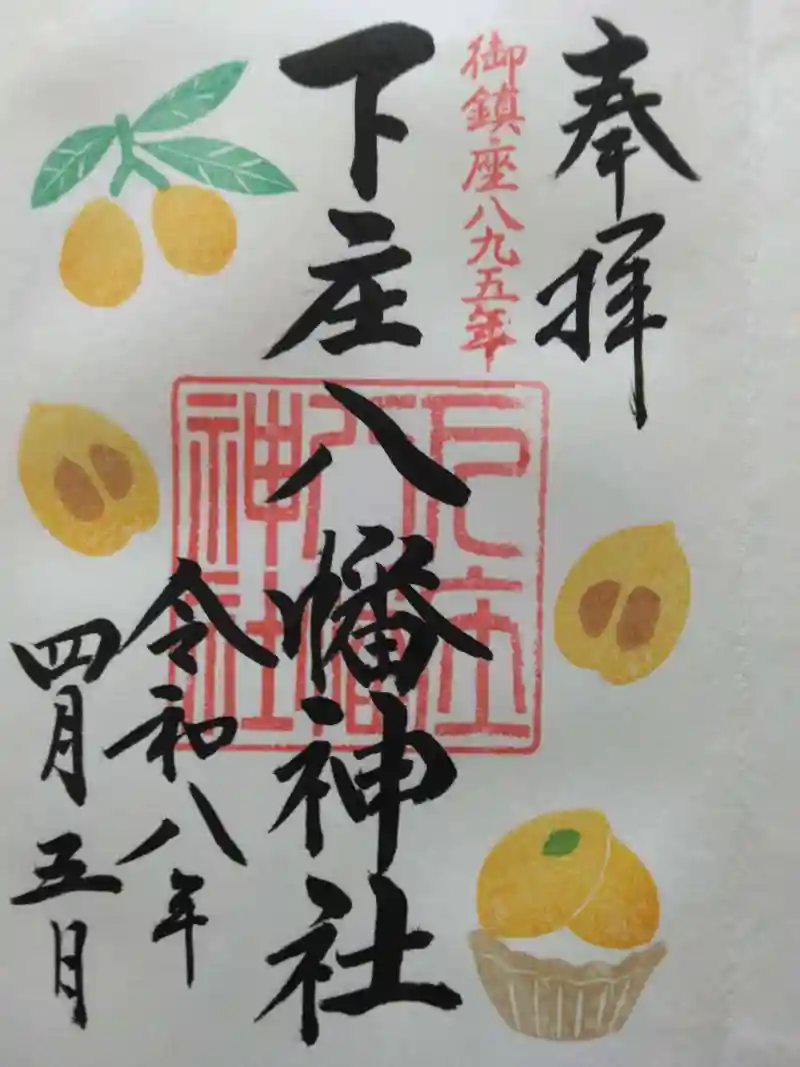 奉拝
御鎮座八九五年
下庄八幡神社
下庄
八幡
神社
令和八年
四月五日